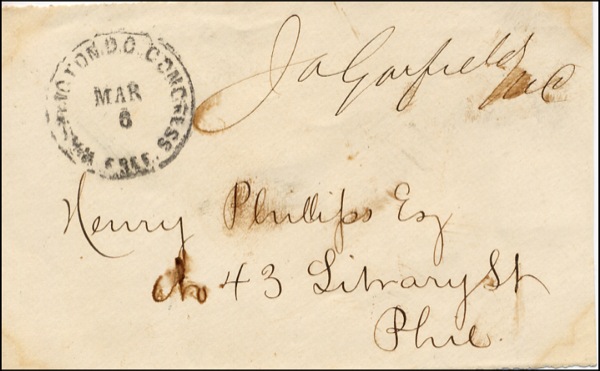 WASHINGTON D.C. CONGRESS
MAR
6
FREE
J A Garfield MC
Henry Phillips Esq
No 43 Library St
Phie.